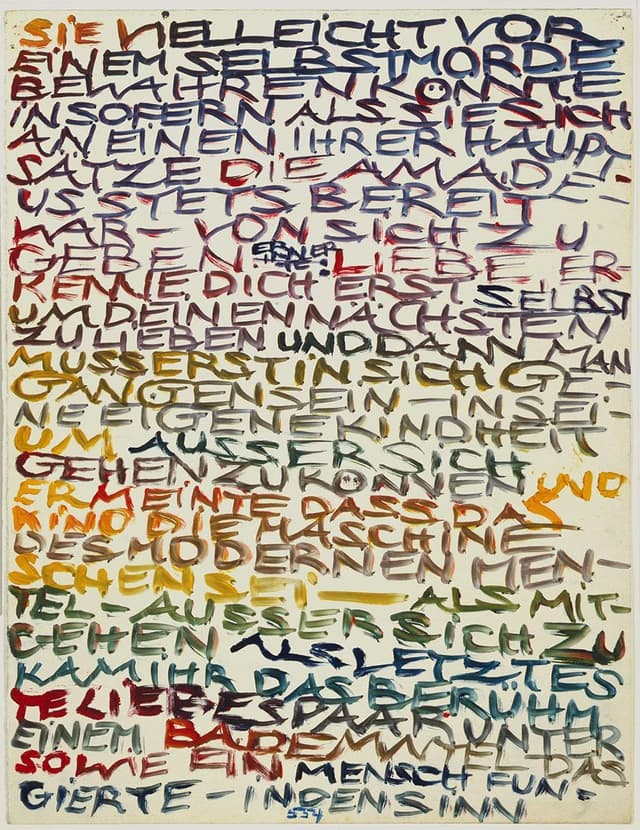 SIE VIELLEICHT VOR
EINEM SELBSTMORDE
BEWAHREN KÖNNTE
INSOFERN ALS SIE SICH
AN EINEN IHRER HAUPT-
SÄTZE DIE AMADE-
US STETS BEREIT
WAR – VON SICH ZU
GEBEN LIEBE ER-
KENNE DICH ERST SELBST
UM DEINEN NÄCHSTEN
ZU LIEBEN UND DANN MAN
MUSS ERST IN SICH GE-
GANGEN SEIN – IN SEI-
NE EIGENE KINDHEIT
UM AUSSER SICH
GEHEN ZU KÖNNEN UND
ER MEINTE DASS DAS
KINO DIE MASCHINE
DES MODERNEN MEN-
SCHEN SEI — ALS MIT-
TEL – AUSSER SICH ZU
GEHEN ALS LETZTES
KAM IHR DAS BERÜHM
TE LIEBESPAAR UNTER
EINEM BADEMANTEL DAS
SOWIE EIN MENSCH FUN-
GIERTE – IN DEN SINN
554